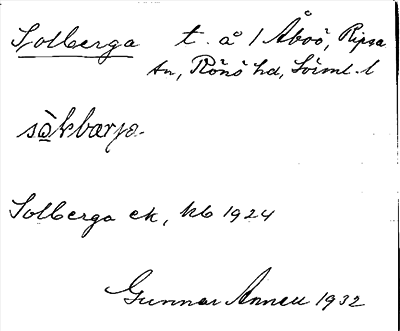 Solberga t. å / Åboö, Ripsa
sn, Rönö hd, Sörml. l
Solberga ek, kb 1924
Gunnar Annell 1932